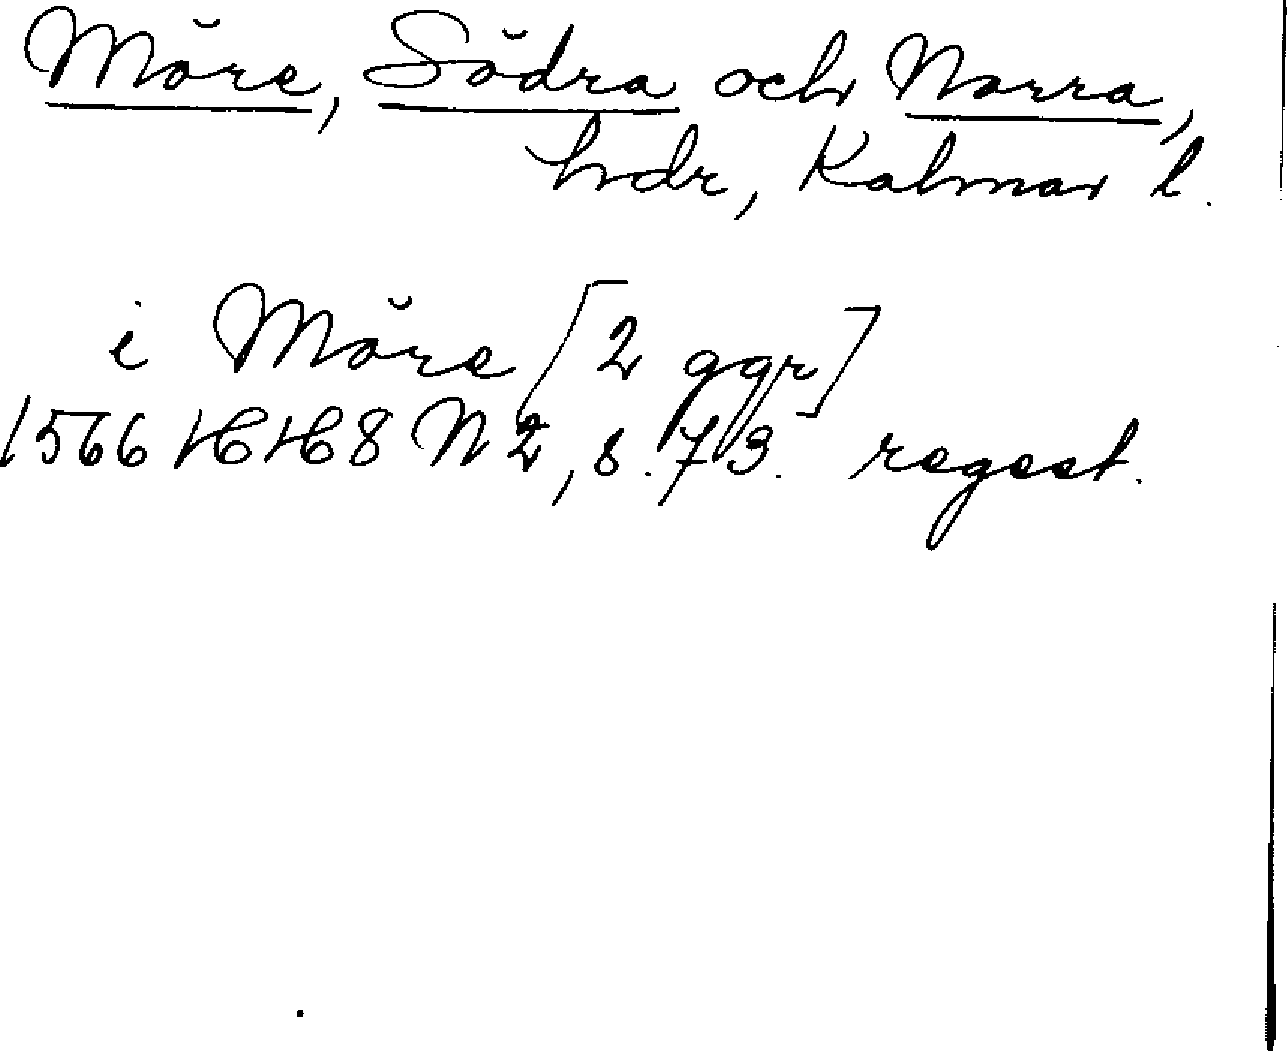 Möre, Södra och Norra,
hdr, Kalmar l.
i Möre [2 ggr]
1566 HH 8 N 2, s. 73. regest.